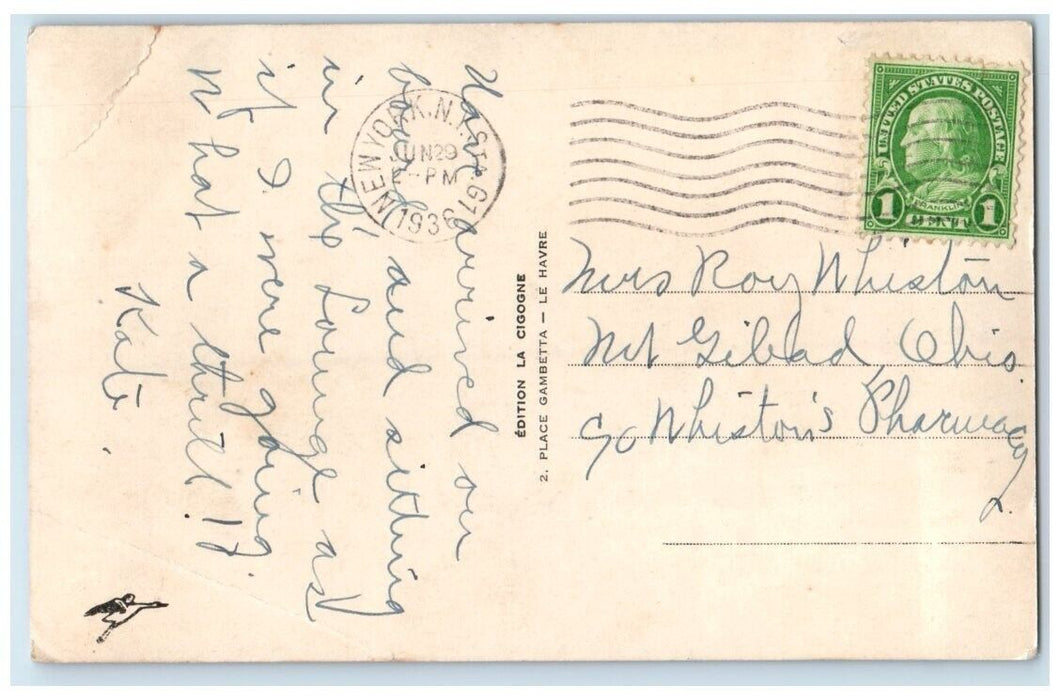 Have arrived on
board and sitting
in the Lounge as
if I were going.
What a thrill!!
Kate.
NEW YORK, N.Y. STA.
JUN 29
PM
1936
ÉDITION LA CIGOGNE
2, PLACE GAMBETTA — LE HAVRE
UNITED STATES POSTAGE
FRANKLIN
1 CENT 1
Mrs Roy Whiston
Mt Gilead, Ohio.
c/o Whiston's Pharmacy